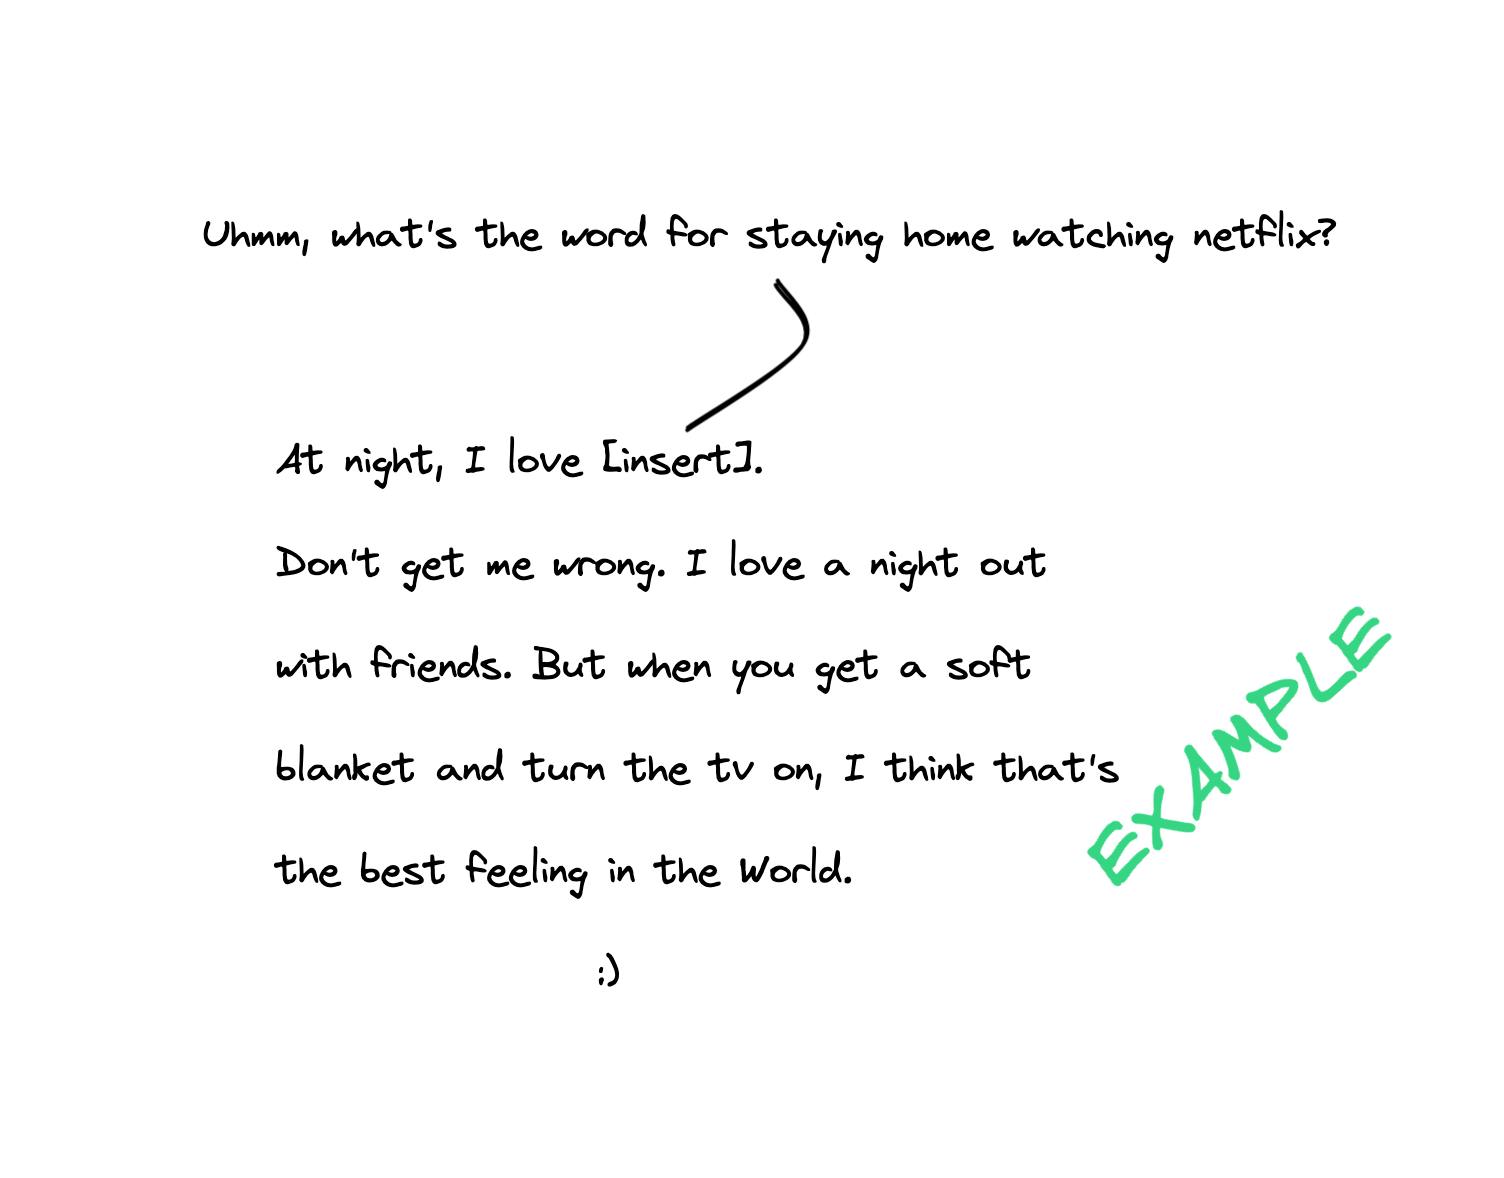 Uhmm, what's the word for staying home watching netflix?
At night, I love [insert].
Don't get me wrong. I love a night out
with friends. But when you get a soft
blanket and turn the tv on, I think that's
the best feeling in the World.
:)
EXAMPLE